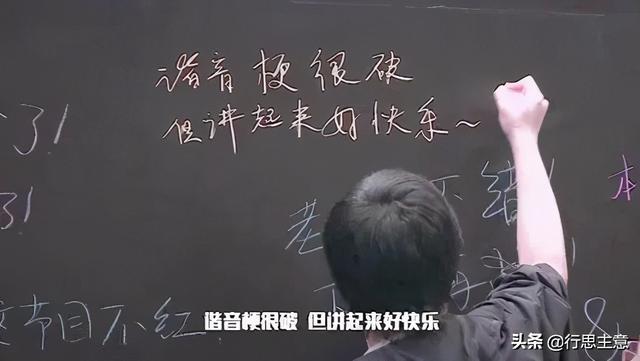 谐音梗很破
但讲起来好快乐~
个了!
了!
不错!
老
本
节目不红
谐音梗很破 但讲起来好快乐
头条 @行思主意